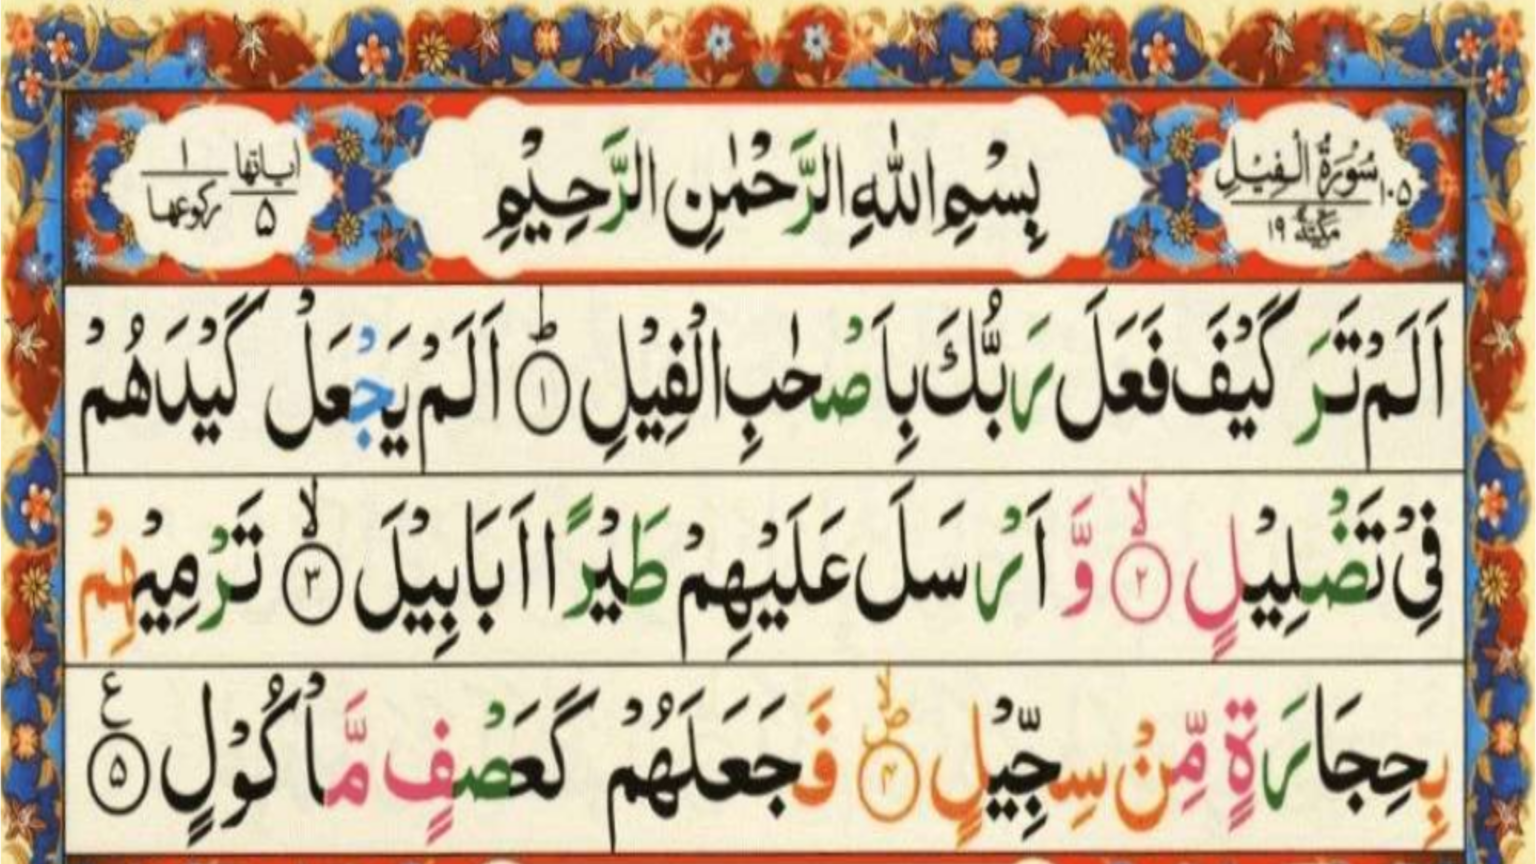 سُوْرَةُ الْفِيْلِ
١٠٥
مَكِّيَّةٌ ١٩
بِسْمِ اللهِ الرَّحْمٰنِ الرَّحِيْمِ
اٰياتها
٥
١
ركوعها
اَلَمْ تَرَ كَيْفَ فَعَلَ رَبُّكَ بِاَصْحٰبِ الْفِيْلِ ؕ ١ اَلَمْ يَجْعَلْ كَيْدَهُمْ
فِيْ تَضْلِيْلٍ ۙ ٢ وَّ اَرْسَلَ عَلَيْهِمْ طَيْرًا اَبَابِيْلَ ۙ ٣ تَرْمِيْهِمْ
بِحِجَارَةٍ مِّنْ سِجِّيْلٍ ۙ ٤ فَجَعَلَهُمْ كَعَصْفٍ مَّاْكُوْلٍ ع ٥